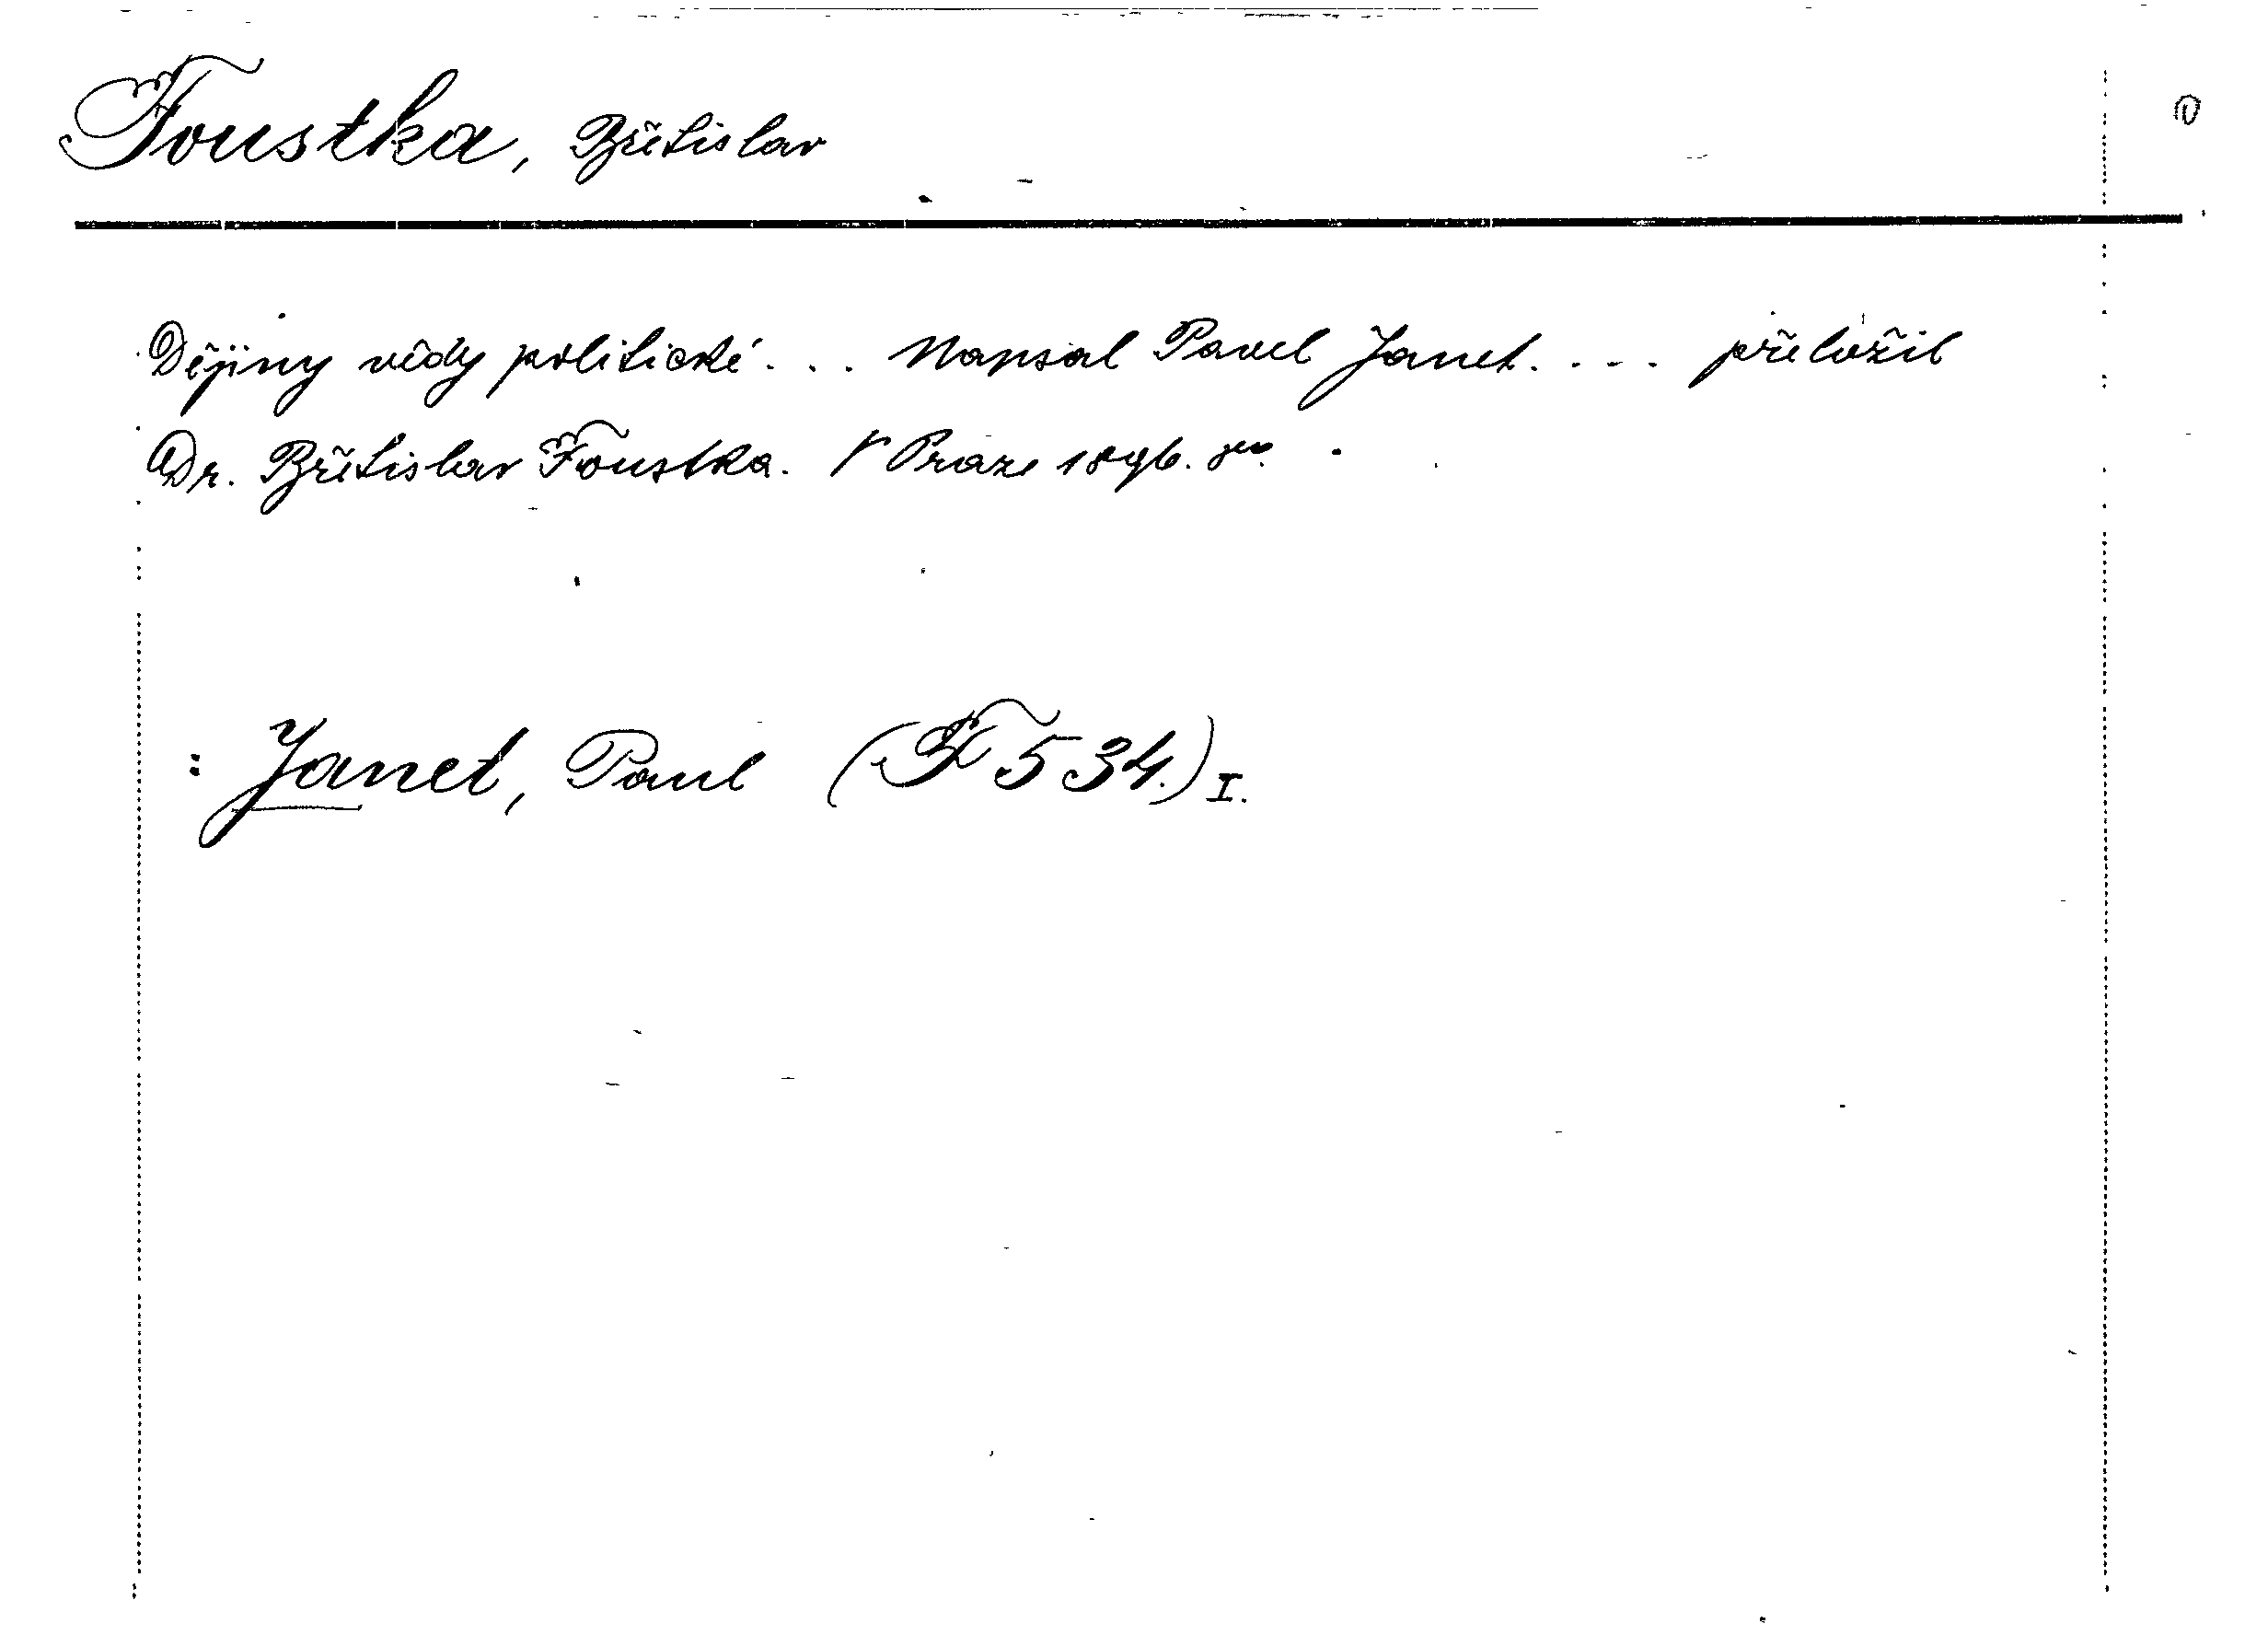 Foustka, Břetislav
Dějiny vědy politické... Napsal Pavel Janet.... přeložil
Dr. Břetislav Foustka. V Praze 1896.
: Janet, Paul (F 534.) I.